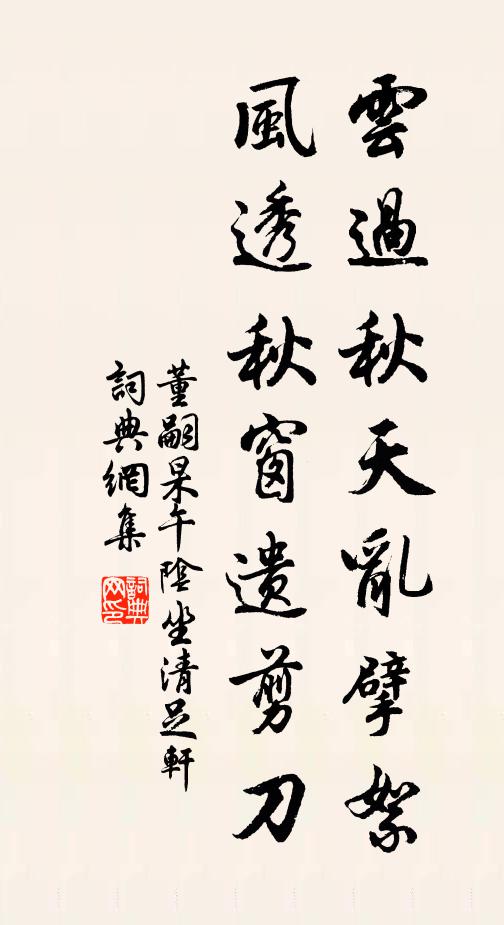 雲過秋天亂擘絮
風透秋窗遺剪刀
董嗣杲午陰坐清足軒
詞典網集
詞典网印